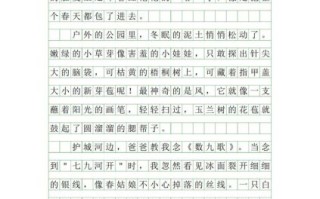 个春天都包了进去。
户外的公园里，冬眠的泥土悄悄松动了。
嫩绿的小草芽像害羞的小娃娃，只敢探出针尖
大的脑袋，可枯黄的梧桐树上，可藏着指甲盖
大小的新芽苞呢！最神奇的是风，它就像一支
蘸着阳光的画笔，轻轻扫过，玉兰树的花苞就
鼓起了圆溜溜的腮帮子。
护城河边，爸爸教我念《数九歌》。当念
到“七九河开”时，我忽然看见冰面裂开细细
的银线，像春姑娘不小心掉落的丝线。一只白